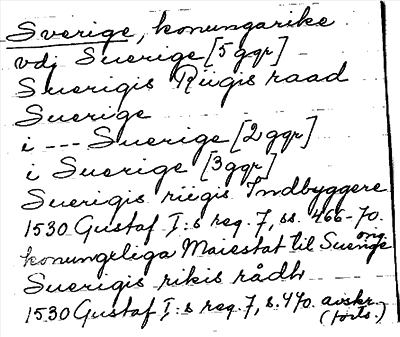 Sverige, konungarike
vdj Suerige [5 ggr]
Suerigis Riigis raad
Suerige
i --- Suerige [2 ggr]
i Suerige [3 ggr]
Suerigis riigis Indbyggere
1530 Gustaf I:s reg. 7, ss. 466-70.
konungliga Maiestat til Suerige orig.
Suerigis rikis rådh
1530 Gustaf I:s reg. 7, s. 470. avskr.
(forts.)